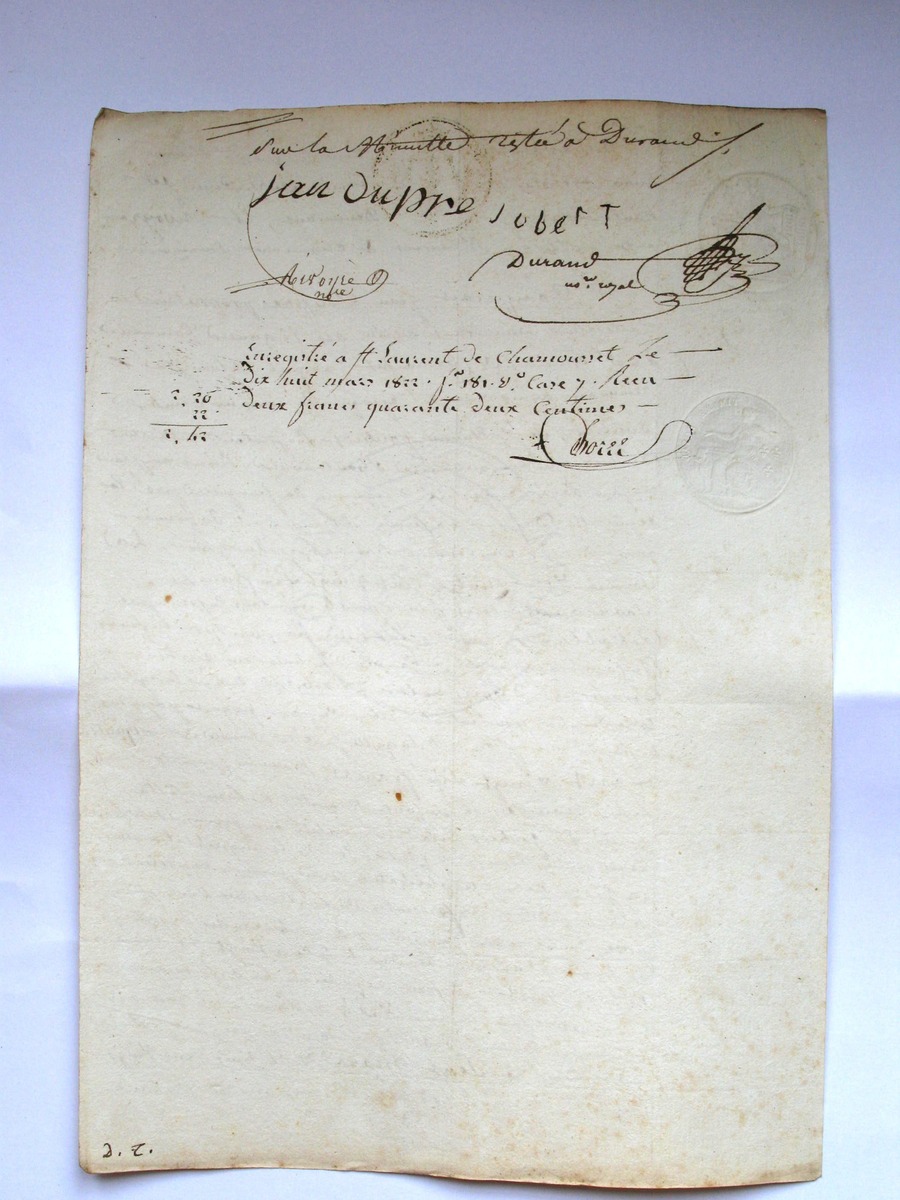 sur la Minutte restée à Durand
jan Dupre
Jobert
Durand
no.re royal
Rivoire
no.re
Enregistré a St Laurent de Chamousset Le
dix huit mars 1822. f.o 181. V.o Case 7. Recu
deux francs quarante deux Centimes
2, 20
22
2, 42
D. T.